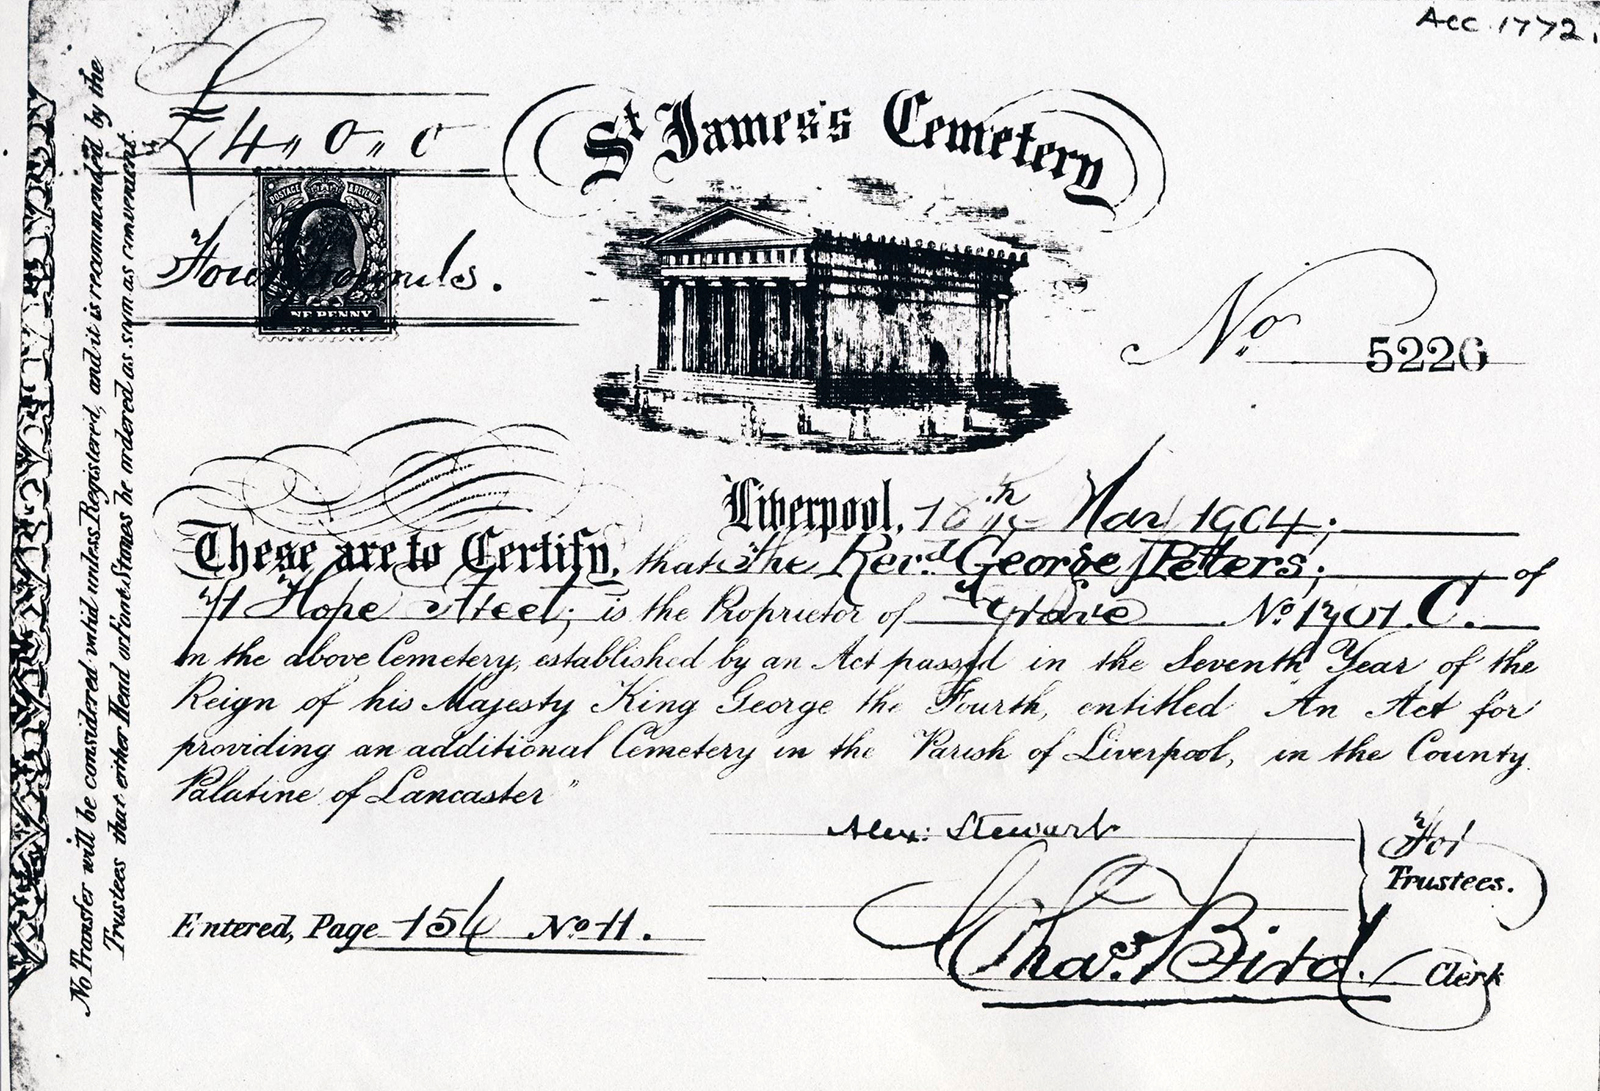 Acc. 1772.
£4,, 0,, 0
St James's Cemetery
POSTAGE & REVENUE
Four Pounds.
NE PENNY
No. 5226
Liverpool, 18th Mar 1904;
These are to Certify, that the Revd. George Peters; of
71 Hope Street; is the Proprietor of Grave No. 1701. C.
in the above Cemetery, established by an Act passed in the Seventh Year of the
Reign of his Majesty King George the Fourth, entitled "An Act for
providing an additional Cemetery in the Parish of Liverpool, in the County
Palatine of Lancaster"
Alex: Stewart
For Trustees.
Entered, Page 156 No. 11.
Chas. Bird. Clerk
No Transfer will be considered valid unless Registered, and it is recommended by the
Trustees that either Head or Foot Stones be ordered as soon as convenient.